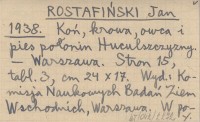 ROSTAFIŃSKI Jan
1938. Koń, krowa, owca i
pies połonin Huculszczyzny.
— Warszawa. Stron 15,
tabl. 3, cm 24 x 17. Wyd. Ko-
misja Naukowych Badań Ziem
Wschodnich, Warszawa. W po-